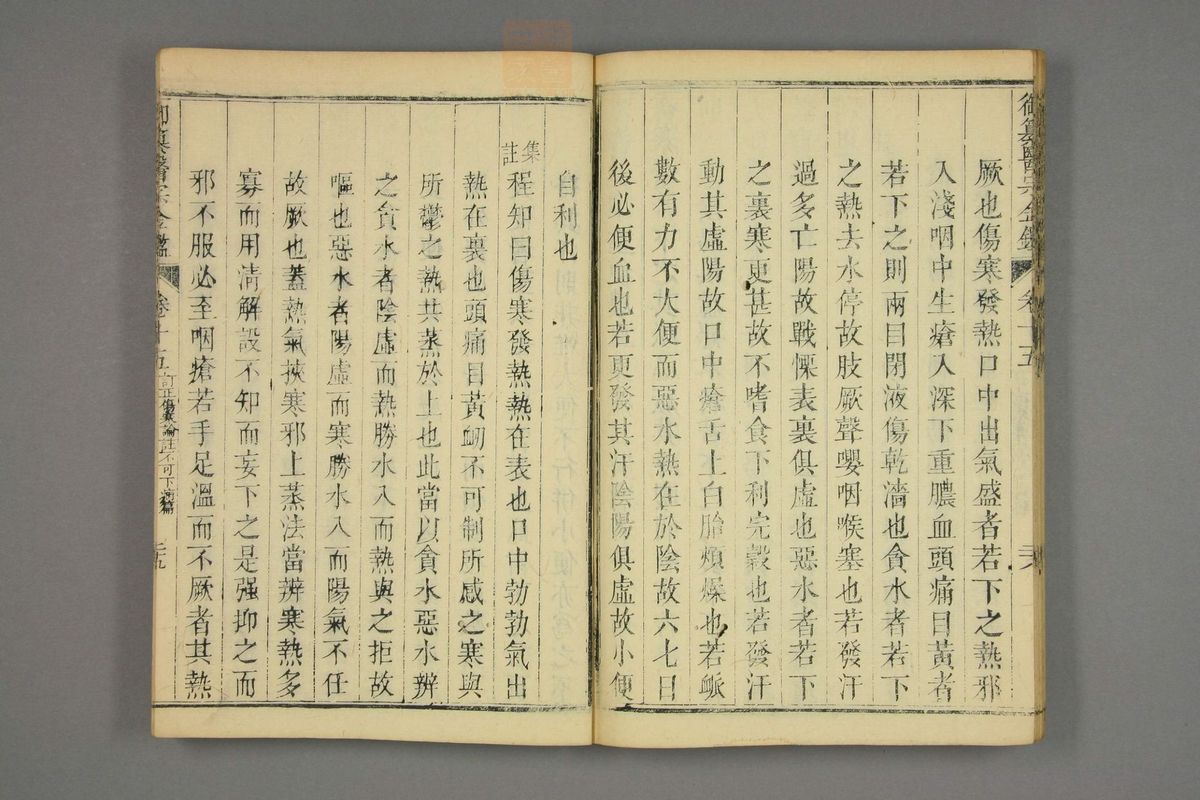 御纂醫宗金鑑 卷十五
厥也傷寒發熱口中出氣盛者若下之熱邪
入淺咽中生瘡入深下重膿血頭痛目黃者
若下之則兩目閉液傷乾濇也貪水者若下
之熱去水停故肢厥聲嚶咽喉塞也若發汗
過多亡陽故戰慄表裏俱虛也惡水者若下
之裏寒更甚故不嗜食下利完穀也若發汗
動其虛陽故口中瘡舌上白胎煩燥也若脈
數有力不大便而惡水熱在於陰故六七日
後必便血也若更發其汗陰陽俱虛故小便
自利也
集註
程知曰傷寒發熱熱在表也口中勃勃氣出
熱在裏也頭痛目黃衂不可制所感之寒與
所鬱之熱共蒸於上也此當以貪水惡水辨
之貪水者陰虛而熱勝水入而熱與之拒故
嘔也惡水者陽虛而寒勝水入而陽氣不任
故厥也蓋熱氣挾寒邪上蒸法當辨寒熱多
寡而用清解設不知而妄下之是强抑之而
邪不服必至咽瘡若手足溫而不厥者其熱
御纂醫宗金鑑 卷十五 訂正傷寒論註不可下病篇